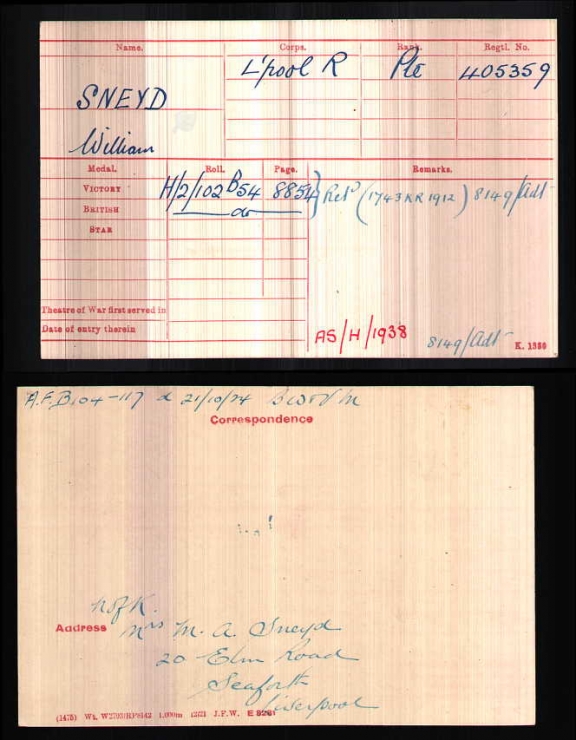 Name. Corps. Rank. Regtl. No.
SNEYD L'pool R Pte 405359
William
Medal. Roll. Page. Remarks.
VICTORY H/2/102 B54 8854 } Ret^d (1743 KR 1912) 8149/Adt
BRITISH do
STAR
Theatre of War first served in
Date of entry therein
AS/H/1938 8149/Adt K. 1380
A.F.B.104-117 d 21/10/24
Correspondence
N of K.
Address Mrs M. A. Sneyd
20 Elm Road
Seaforth
Liverpool
J.F.W.